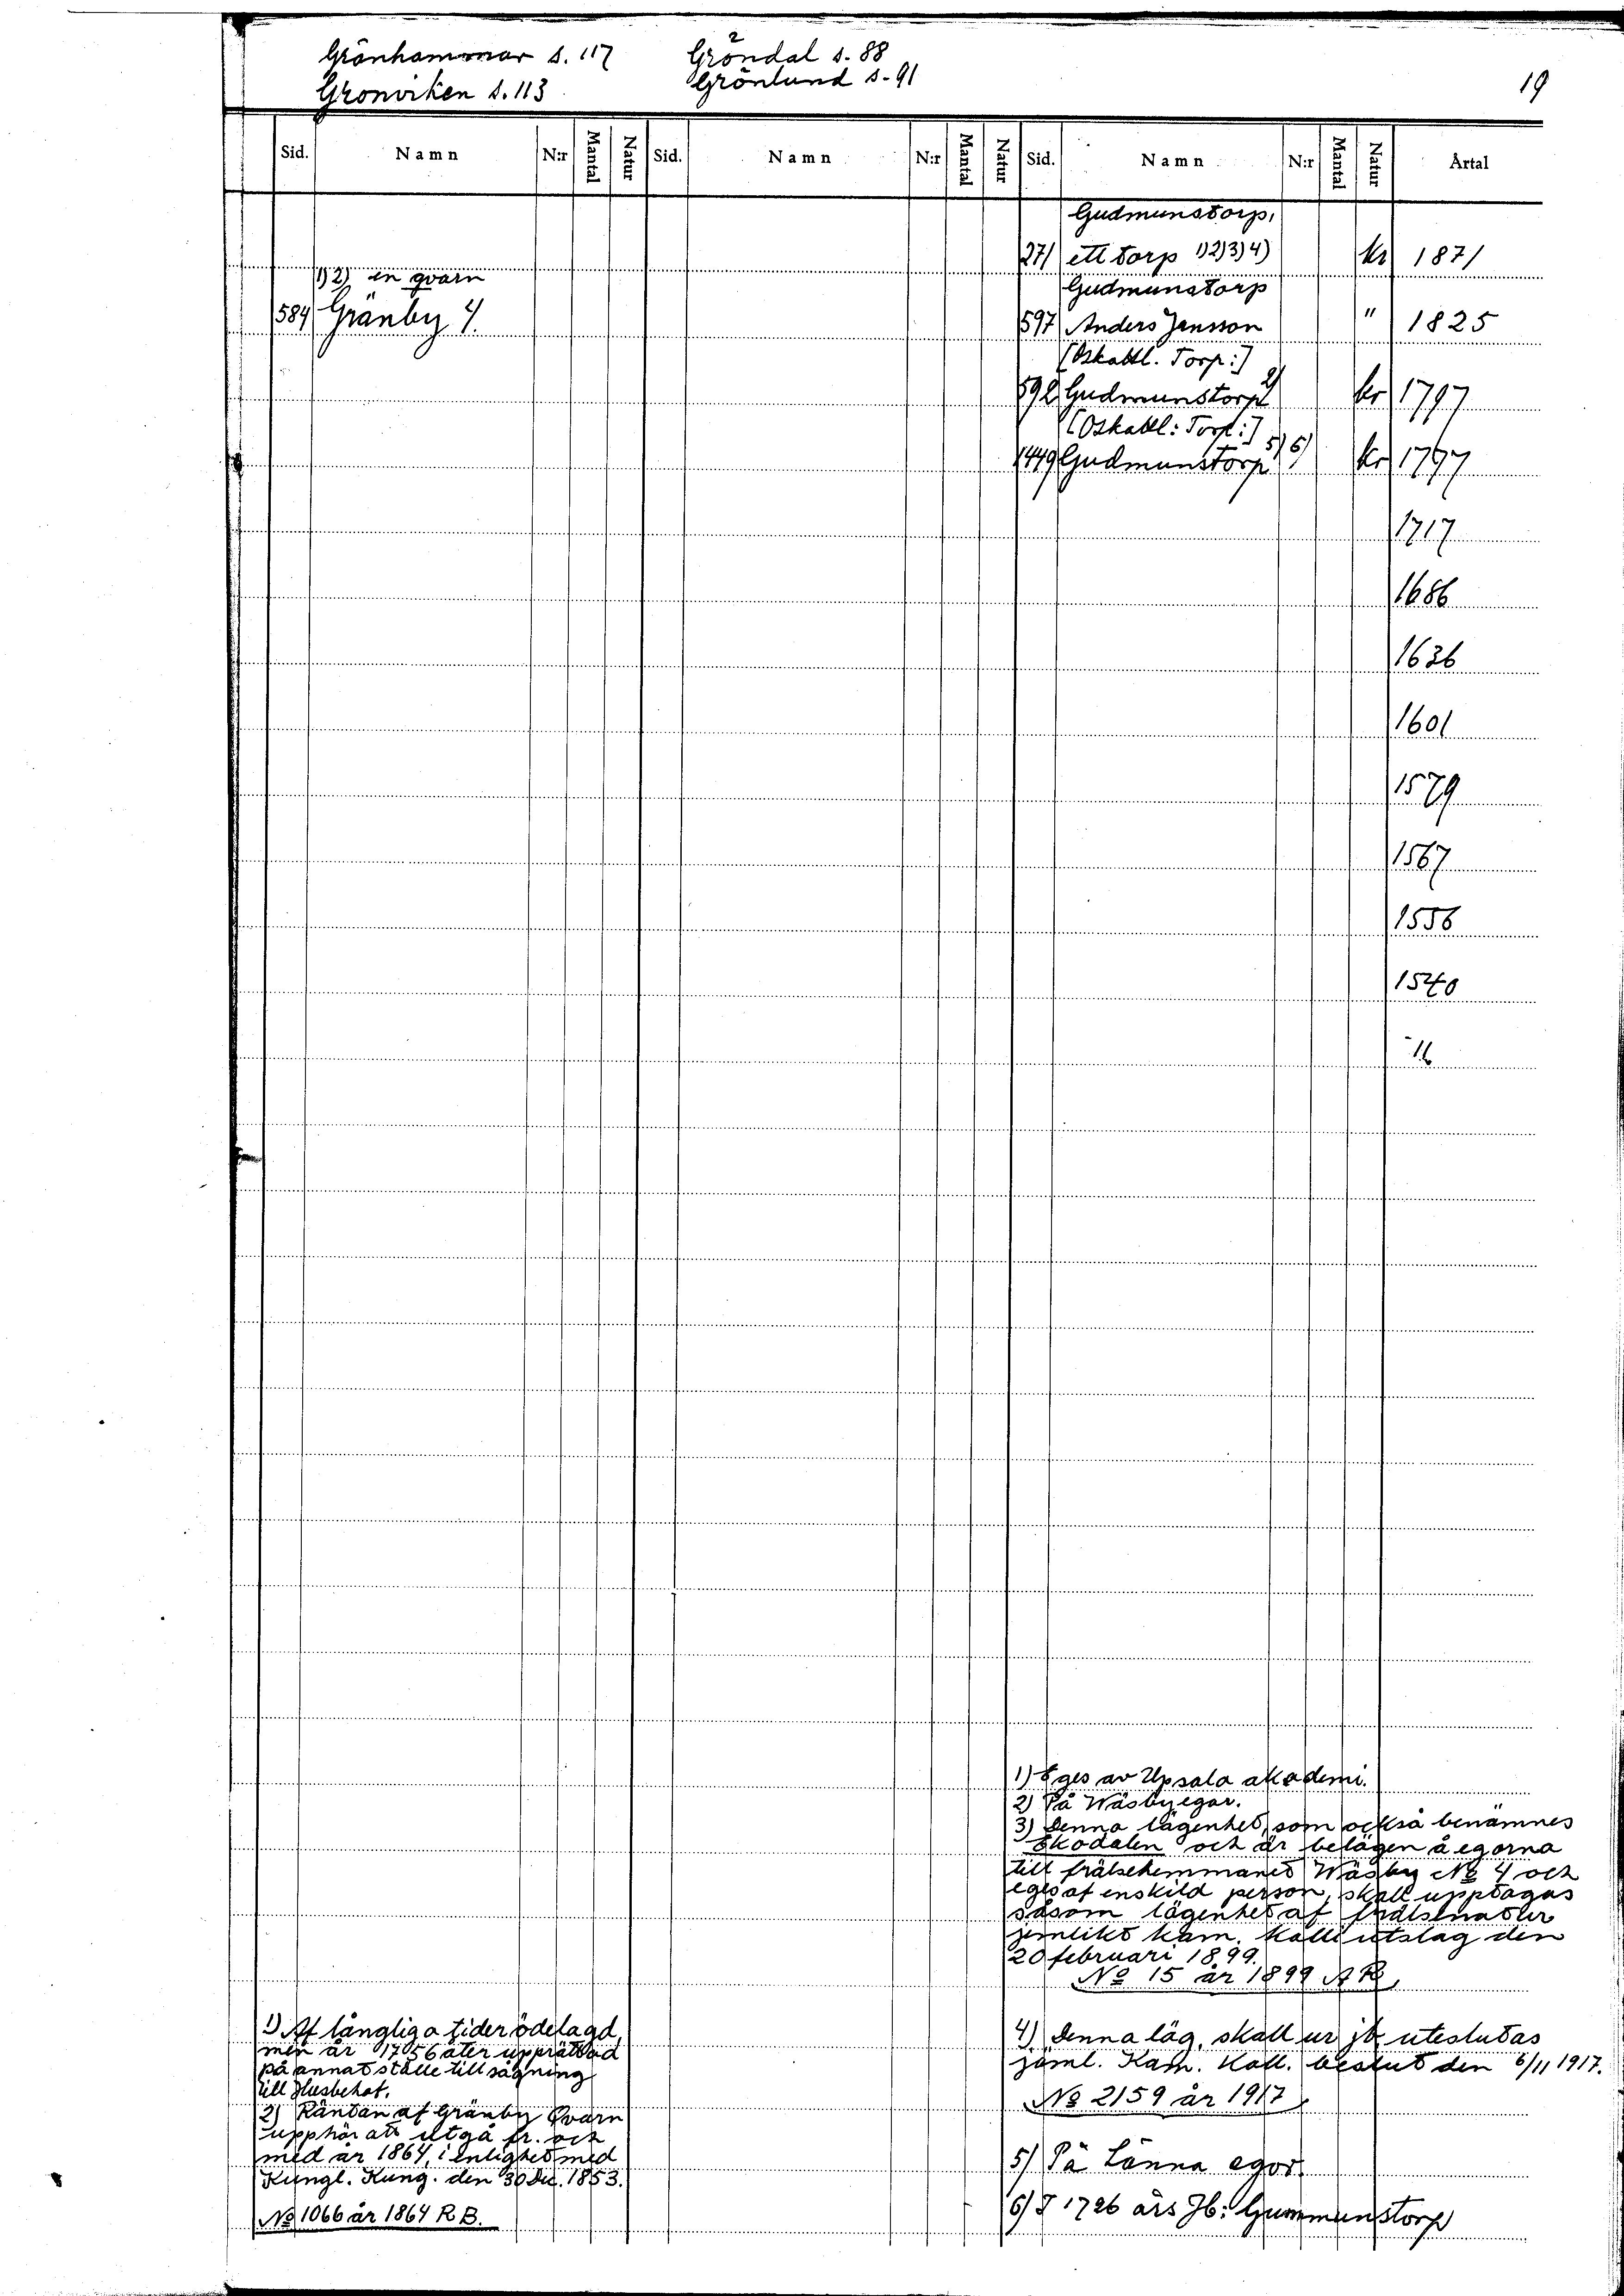 Grönhammar s. 117
Grönviken s. 113
2
Gröndal s. 88
Grönlund s. 91
19
Sid. Namn N:r Mantal Natur Sid. Namn N:r Mantal Natur Sid. Namn N:r Mantal Natur Årtal
Gudmunstorp,
271 ett torp 1)2)3)4) kr 1871
1) 2) en qvarn
Gudmunstorp
584 Gränby 4.
597 Anders Jansson " 1825
(Oskattl. Torp:)
592 Gudmunstorp 2) kr 1797
(Oskattl: Torp:)
1449 Gudmunstorp 5) 6) kr 1797
1717
1686
1626
1601
1579
1567
1556
1540
1) Eges av Upsala akademi.
2) På Wäsby egor.
3) Denna lägenhet, som också benämnes
Skodalen och är belägen å egorna
till frälsehemmanet Wäsby No 4 och
eges af enskild person, skall upptagas
såsom lägenhet af frälsenatur
jemlikt kam. koll. utslag den
20 februari 1899.
No 15 år 1899 A B
4) Denna läg. skall ur jb. uteslutas
jäml. Kam. Koll. beslut den 6/11 1917.
No 2159 år 1917
5) På Länna egor
6) I 1726 års Jb: Gummunstorp
1) Af långliga tider ödelagd,
men år 1756 åter upprättad
på annat ställe till sågning
till Husbehof.
2) Räntan af Gränby Qvarn
upphör att utgå fr. och
med år 1864, i enlighet med
Kungl. Kung. den 30 Dec. 1853.
No 1066 år 1864 R B.